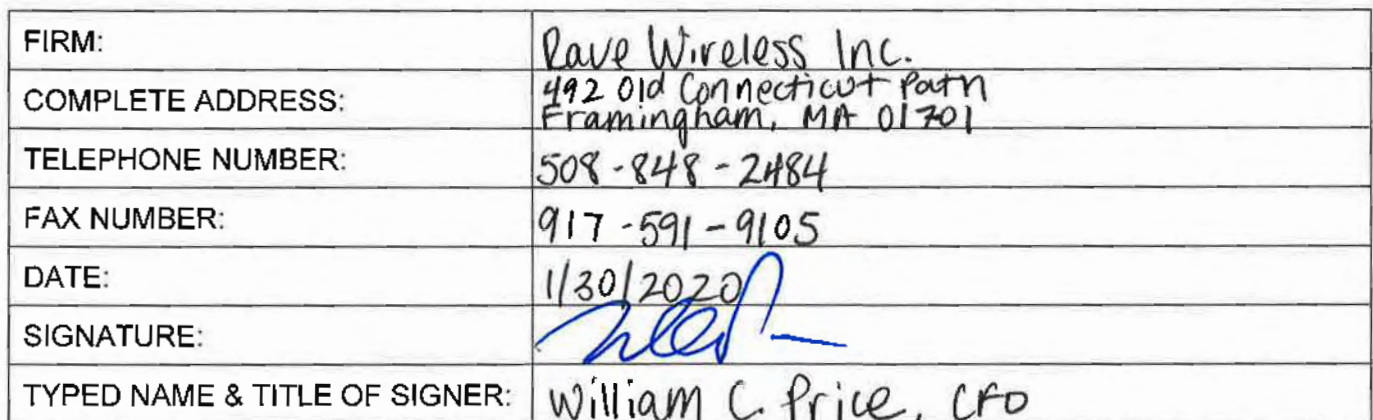 FIRM: Rave Wireless Inc.
COMPLETE ADDRESS: 492 Old Connecticut Path
Framingham, MA 01701
TELEPHONE NUMBER: 508-848-2484
FAX NUMBER: 917-591-9105
DATE: 1/30/2020
SIGNATURE:
TYPED NAME & TITLE OF SIGNER: William C. Price, CFO